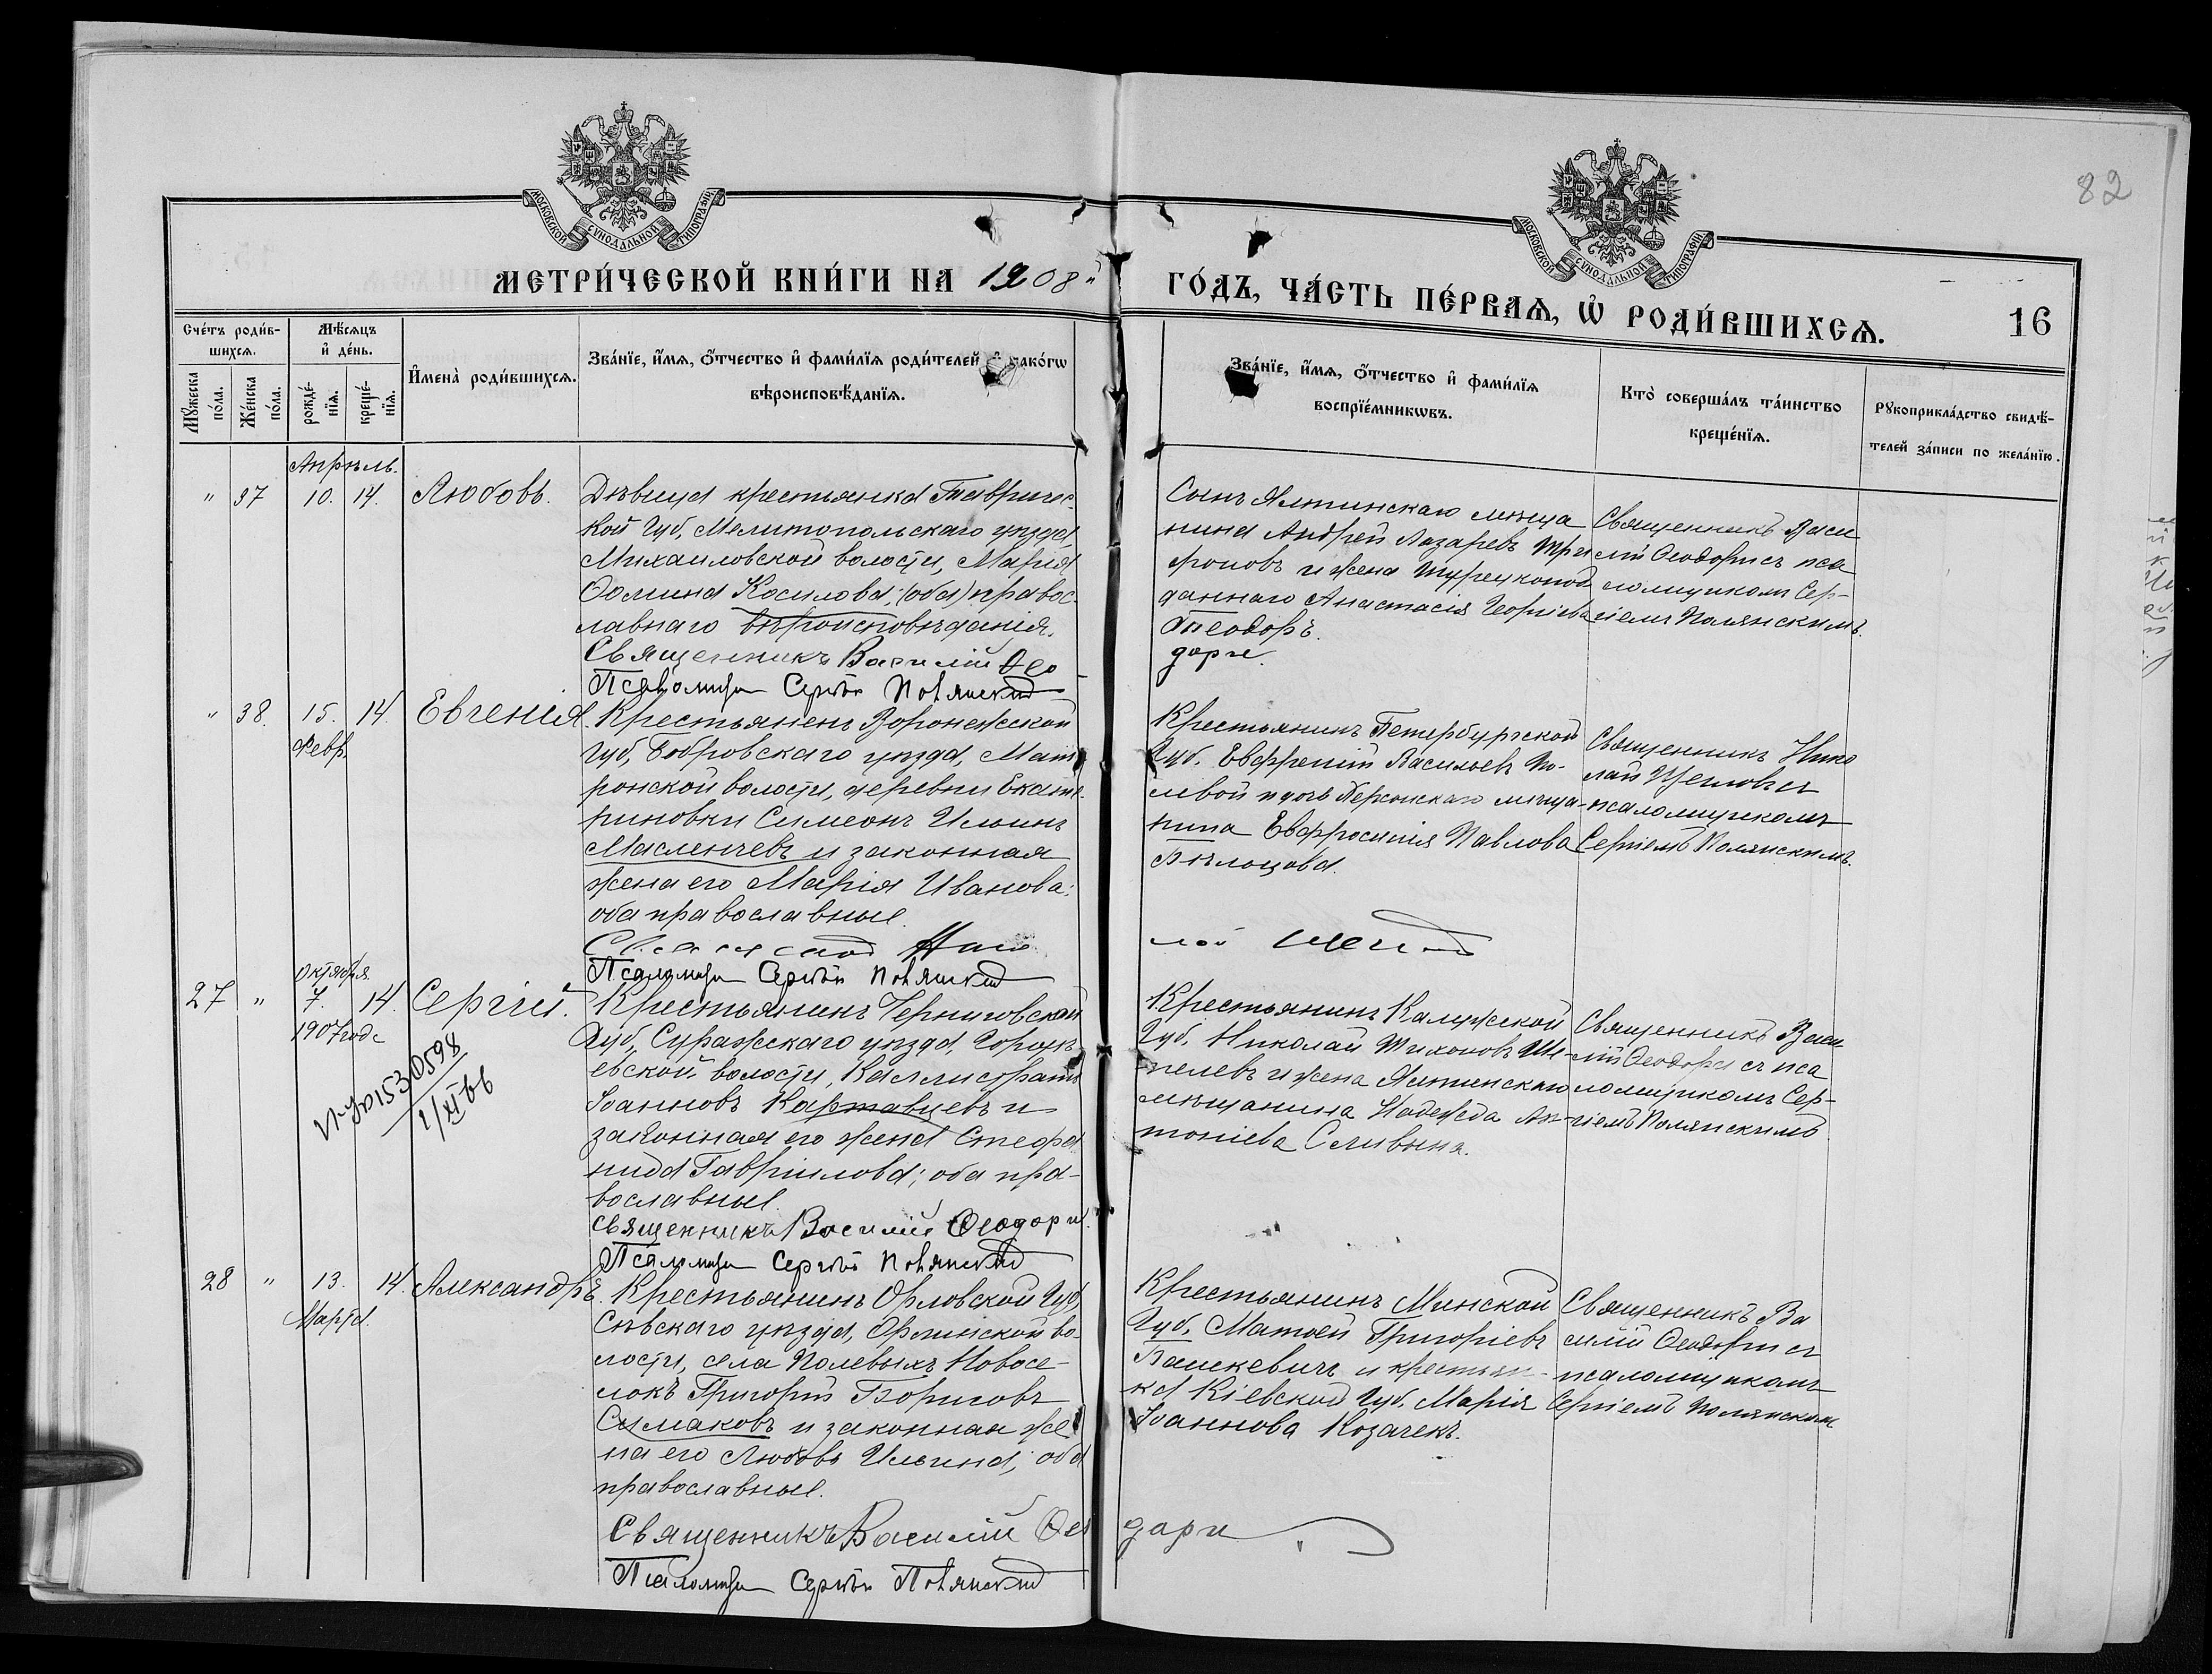 82
МОСКОВСКОЙ СУНОДАЛЬНОЙ ТИПОГРАФІИ.
МОСКОВСКОЙ СУНОДАЛЬНОЙ ТИПОГРАФІИ.
МЕТРИ́ЧЕСКОЙ КНИ́ГИ НА 1908й
ГО́ДЪ, ЧА́СТЬ ПЕ́РВАѦ, Ѡ҆ РОДИ́ВШИХСѦ.
16
Сче́тъ роди́в-
шихсѧ.
Мꙋ́жеска
по́ла.
Же́нска
по́ла.
Мѣ́сѧцъ
и҆ де́нь.
рожде́-
нїѧ.
креще́-
нїѧ.
И҆мена̀ роди́вшихсѧ.
Зва́нїе, и҆́мѧ, ѻ҆́тчество и҆ фами́лїѧ роди́телей и҆ како́гѡ
вѣроисповѣ́данїѧ.
Зва́нїе, и҆́мѧ, ѻ҆́тчество и҆ фами́лїѧ
воспрїе́мникѡвъ.
Кто̀ соверша́лъ та́инство
креще́нїѧ.
Рꙋкоприкла́дство свидѣ́-
телей за́писи по жела́нїю.
Апрѣль.
" 37 10. 14. Любовь.
Дѣвица крестьянка Тавричес-
кой губ, Мелитопольскаго уѣзда,
Михаиловской волости, Марія
Ѳомина Косилова; (оба) правос-
лавнаго вѣроисповѣданія.
Священникъ Василій Ѳео
Псаломщи Сергѣй Полянскій
Сынъ Ялтинскаго мѣща
нина Андрей Лазаревъ Три
фоновъ и жена Турецкопод
даннаго Анастасія Георгіева
Теодоръ.
дори.
Священникъ Васи
лій Ѳеодори съ пса
ломщикомъ Сер-
гіемъ Полянскимъ.
" 38. 15. 14. Евгенія.
Февр.
Крестьяненъ Воронежской
губ, Бобровскаго уѣзда, Мат
ронской волости, деревни Екате-
риновки Симеонъ Ильинъ
Масленчевъ и законная
жена его Марія Иванова;
оба православные.
Псаломщи Сергѣй Полянскій
Крестьянинъ Петербургской
Губ. Евфрепій Васильевъ По-
левой и дочь Херсонскаго мѣща-
нина Евфросинія Павлова
Бѣлоцова.
Священникъ Нико
лай Щегловъ съ
псаломщикомъ
Сергіемъ Полянскимъ.
27 " 7. 14. Сергій.
октября
1907 года
0153 0598
1/XI 66
Крестьянинъ Черниговской
Губ, Суражскаго уѣзда, Городе-
евской волости, Каллистратъ
Іоанновъ Картавцевъ и
законная его жена Стефа
нида Гавріилова; оба пра-
вославные.
священникъ Василій Ѳеодори.
Псаломщи Сергѣй Полянскій
Крестьянинъ Калужской
Губ. Николай Тихоновъ Ше-
пелевъ и жена Ялтинскаго
мѣщанина Надежда Ан-
тоніева Сливина.
Священникъ Васи
лій Ѳеодори съ пса
ломщикомъ Сер-
гіемъ Полянскимъ
28 " 13. 14. Александръ.
Марта.
Крестьянинъ Орловской Губ,
Сѣвскаго уѣзда, Орлинской во-
лости, села Полевыхъ Новосе-
локъ Григорій Борисовъ
Симаковъ и законная же
на его Любовь Ильина; оба
православные.
Священникъ Василій Ѳео
дори
Псаломщи Сергѣй Полянскій
Крестьянинъ Минской
Губ. Матѳей Григоріевъ
Вашкевичъ и крестьян-
ка Кіевской Губ. Марія
Іоаннова Козачекъ.
Священникъ Ва
силій Ѳеодори съ
псаломщикомъ
Сергіемъ Полянским